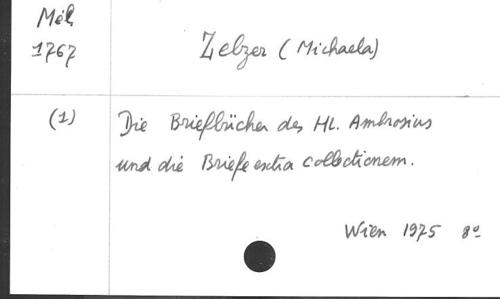 Mél
1767
Zelzer (Michaela)
(1) Die Briefbücher des Hl. Ambrosius
und die Briefe extra collectionem.
Wien 1975 8º